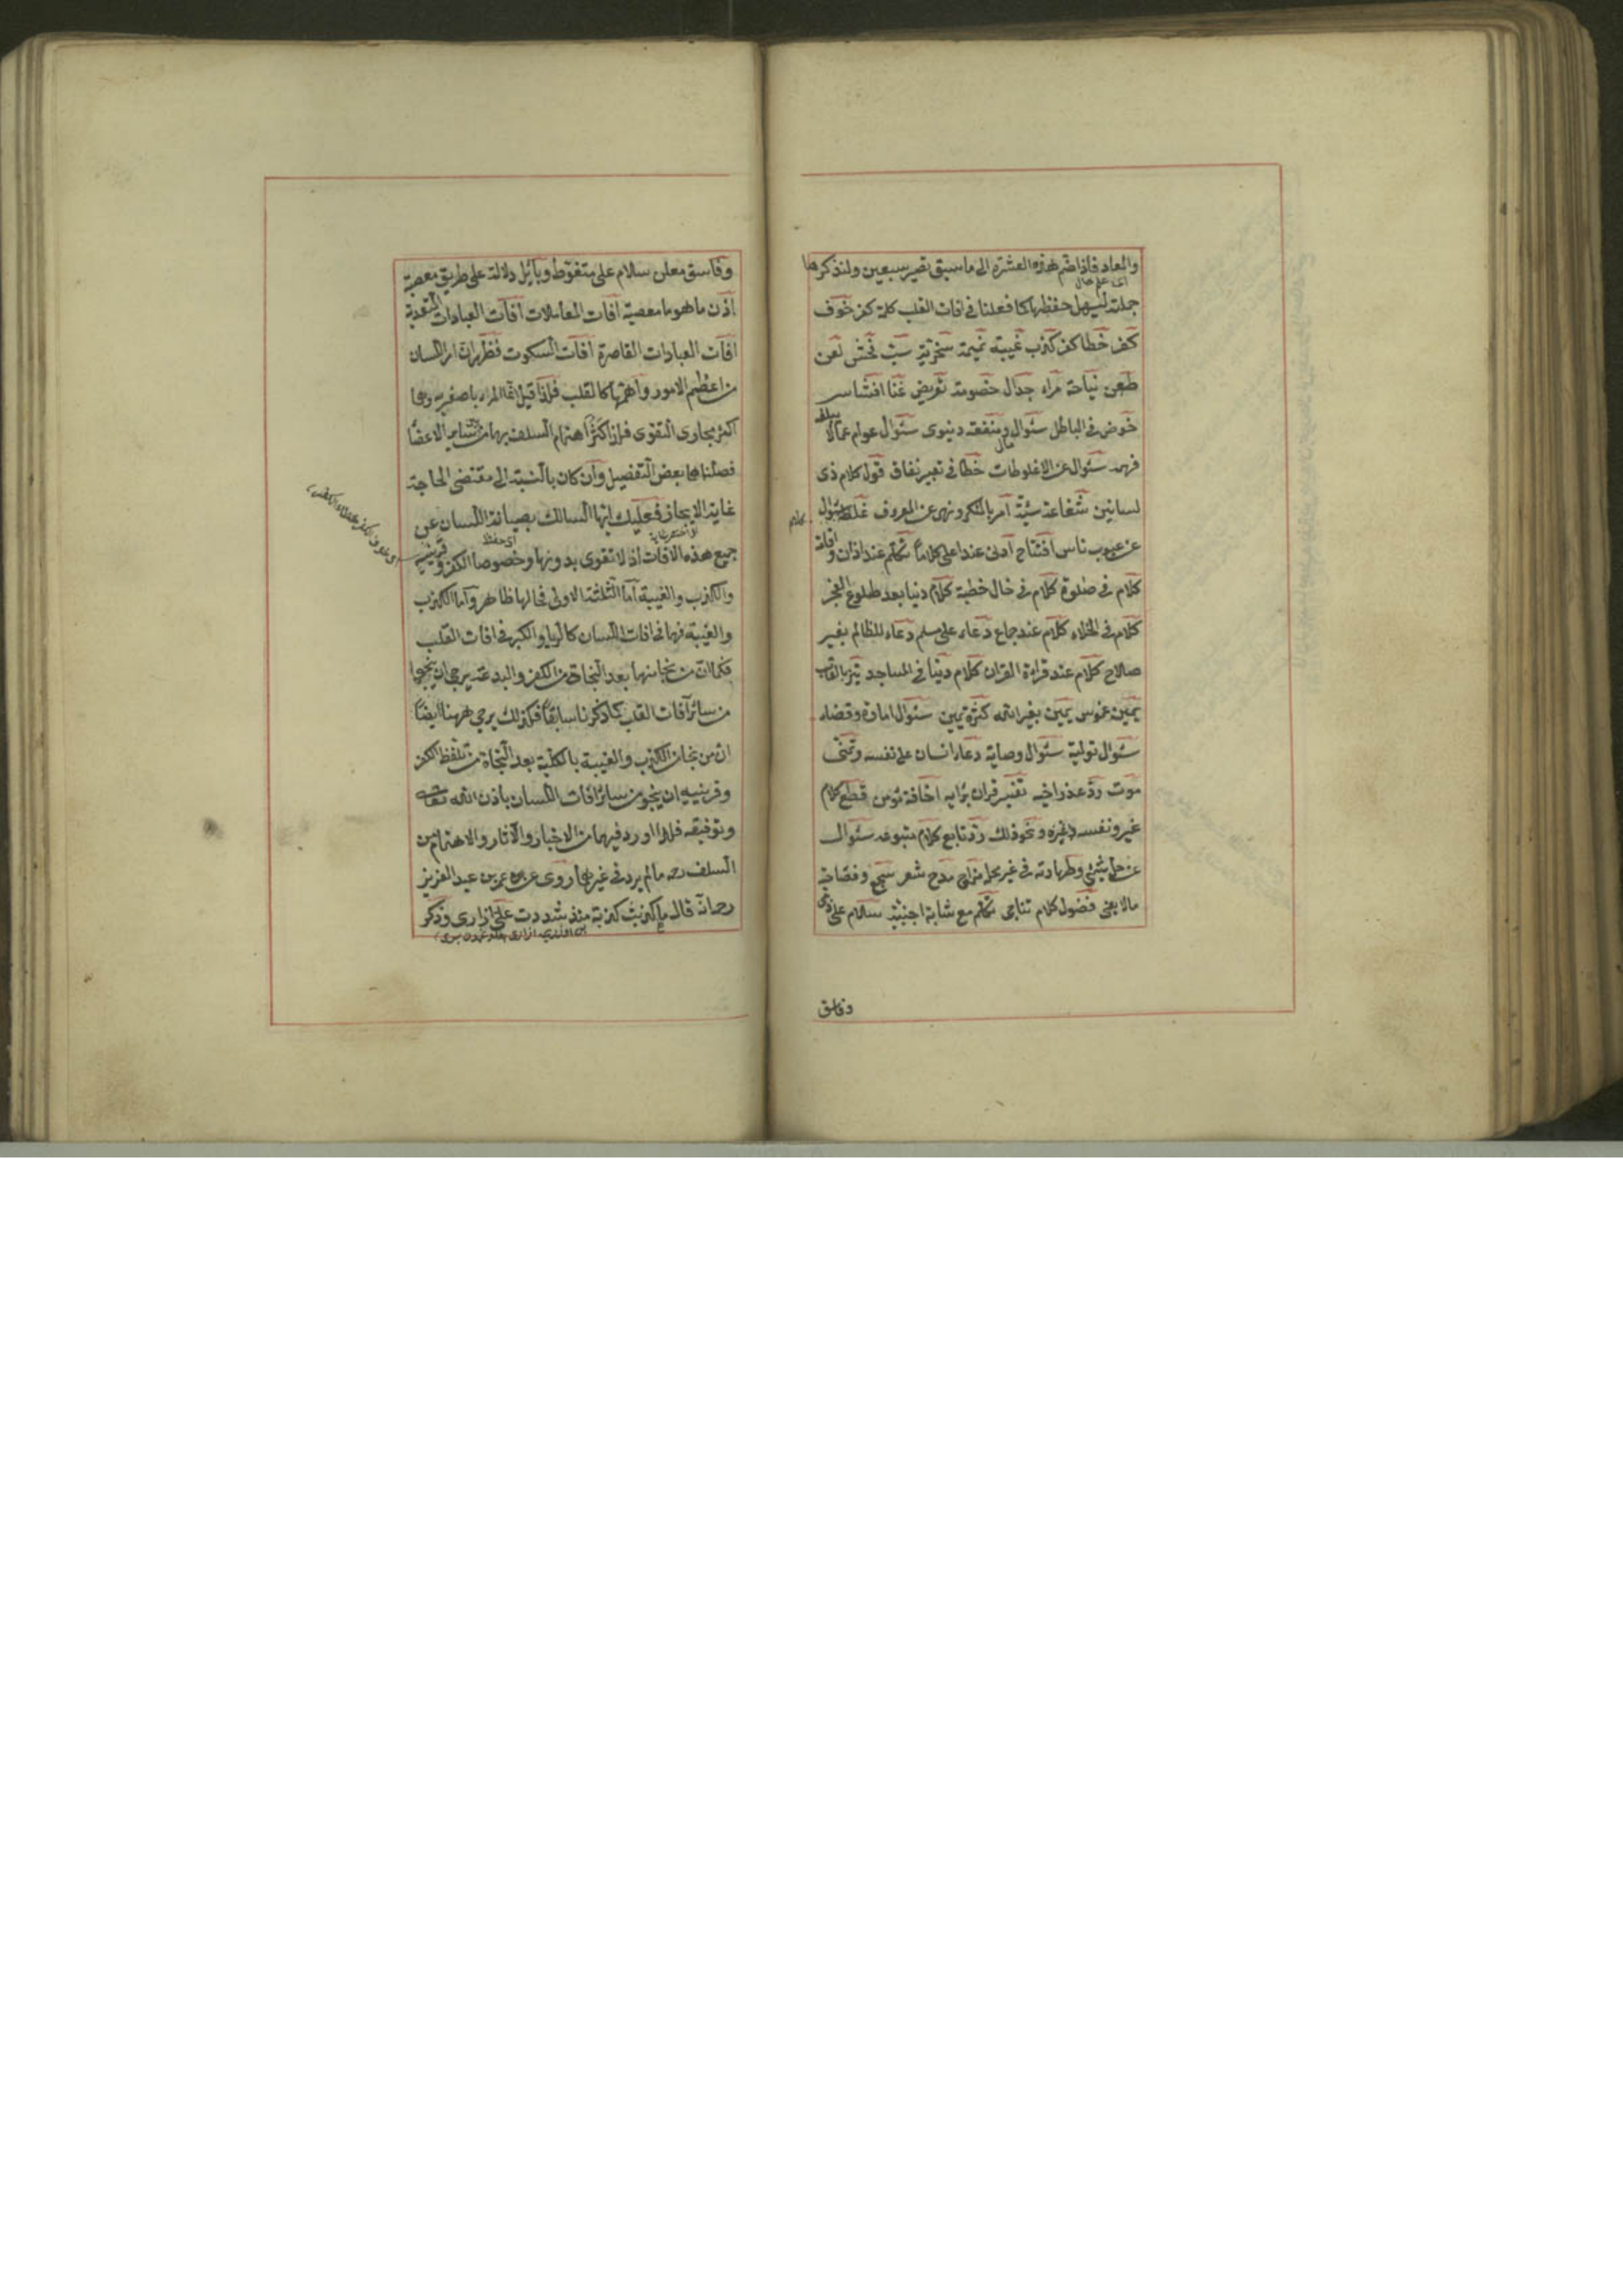 والمعاد فاذا ضم هذه العشرة الى ما سبق تصير سبعين ولنذكرها
جملة ليسهل حفظها كما فعلنا في افات القلب كلمة كفر خوف
كفر خطا كفر كذب غيبة نميمة سخرية سب فحش لعن
طعن نياحة مراء جدال خصومة تعريض غنا افشا سر
خوض في الباطل سئوال ومنفعة دنيوى سئوال عوام عما لا يبلغه
مال
فهمه سئوال عن الاغلوطات خطا في تعبير نفاق قول كلام ذى
لسانين شفاعة سيئة امر بالمنكر ونهى عن المعروف غلظ سئوال
كلام
عن عيوب ناس افتتاح ادنى عند اعلى كلاماً تكلم عند اذان واقامة
كلام في صلوة كلام في حال خطبة كلام دنيا بعد طلوع الفجر
كلام في الخلاء كلام عند جماع دعاء على مسلم دعاء للظالم بغير
صلاح كلام عند قراءة القران كلام دنيا في المساجد نبز بالقاب
يمين غموس يمين بغير الله كثرة يمين سئوال امارة وقضاء
سئوال تولية سئوال وصاية دعاء انسان على نفسه وتمنى
موت رد عذر اخيه تفسير قران برايه اخافة مؤمن قطع كلام
غير ونفسه لغيره ونحو ذلك رد تابع كلام متبوعه سئوال
عن حل شيئ وطهارته في غير محله مزاح مدح شعر سجع وفصاحة
مالا يعنى فضول كلام تناجى تكلم مع شابة اجنبية سلام على ذمى
وفاسق
وفاسق معلن سلام على متغوط وبايل دلالة على طريق معصية
اذن ما هو ما معصية افات المعاملات افات العبادات المتعدية
افات العبادات القاصرة افات السكوت فظهر ان امر اللسان
من اعظم الامور واهمها كالقلب فلذا قيل انما المرء باصغريه وهما
اكثر مجارى التقوى فلذا كثر اهتمام السلف بهما من ساير الاعضا
فصلناها بعض التفصيل وان كان بالنسبة الى مقتضى الحاجة
غاية الايجاز فعليك ايها السالك بصيانة اللسان عن
اى حفظ
جميع هذه الافات اذ لا تقوى بدونها وخصوصا الكفر وقرينيه
والكذب والغيبة اما الثلثة الاولى فحالها ظاهر واما الكذب
والغيبة فهما في افات اللسان كالريا والكبر في افات القلب
فكما ان من نجا منهما بعد النجاة من الكفر والبدعة يرجى ان ينجو
من سائر آفات القلب كما ذكرنا سابقاً فكذلك يرجى ههنا ايضاً
ان من نجا من الكذب والغيبة بالكلية بعد النجاة من تلفظ الكفر
وقرينيه ان ينجو من سائر افات اللسان باذن الله تعالى
وتوفيقه فلذا اورد فيهما من الاخبار والآثار والاهتمام من
السلف رحه ما لم يرد في غيرهما روى عن عمر بن عبد العزيز
رحمه الله قال ما كذبت كذبة منذ شددت على ازارى وذكر